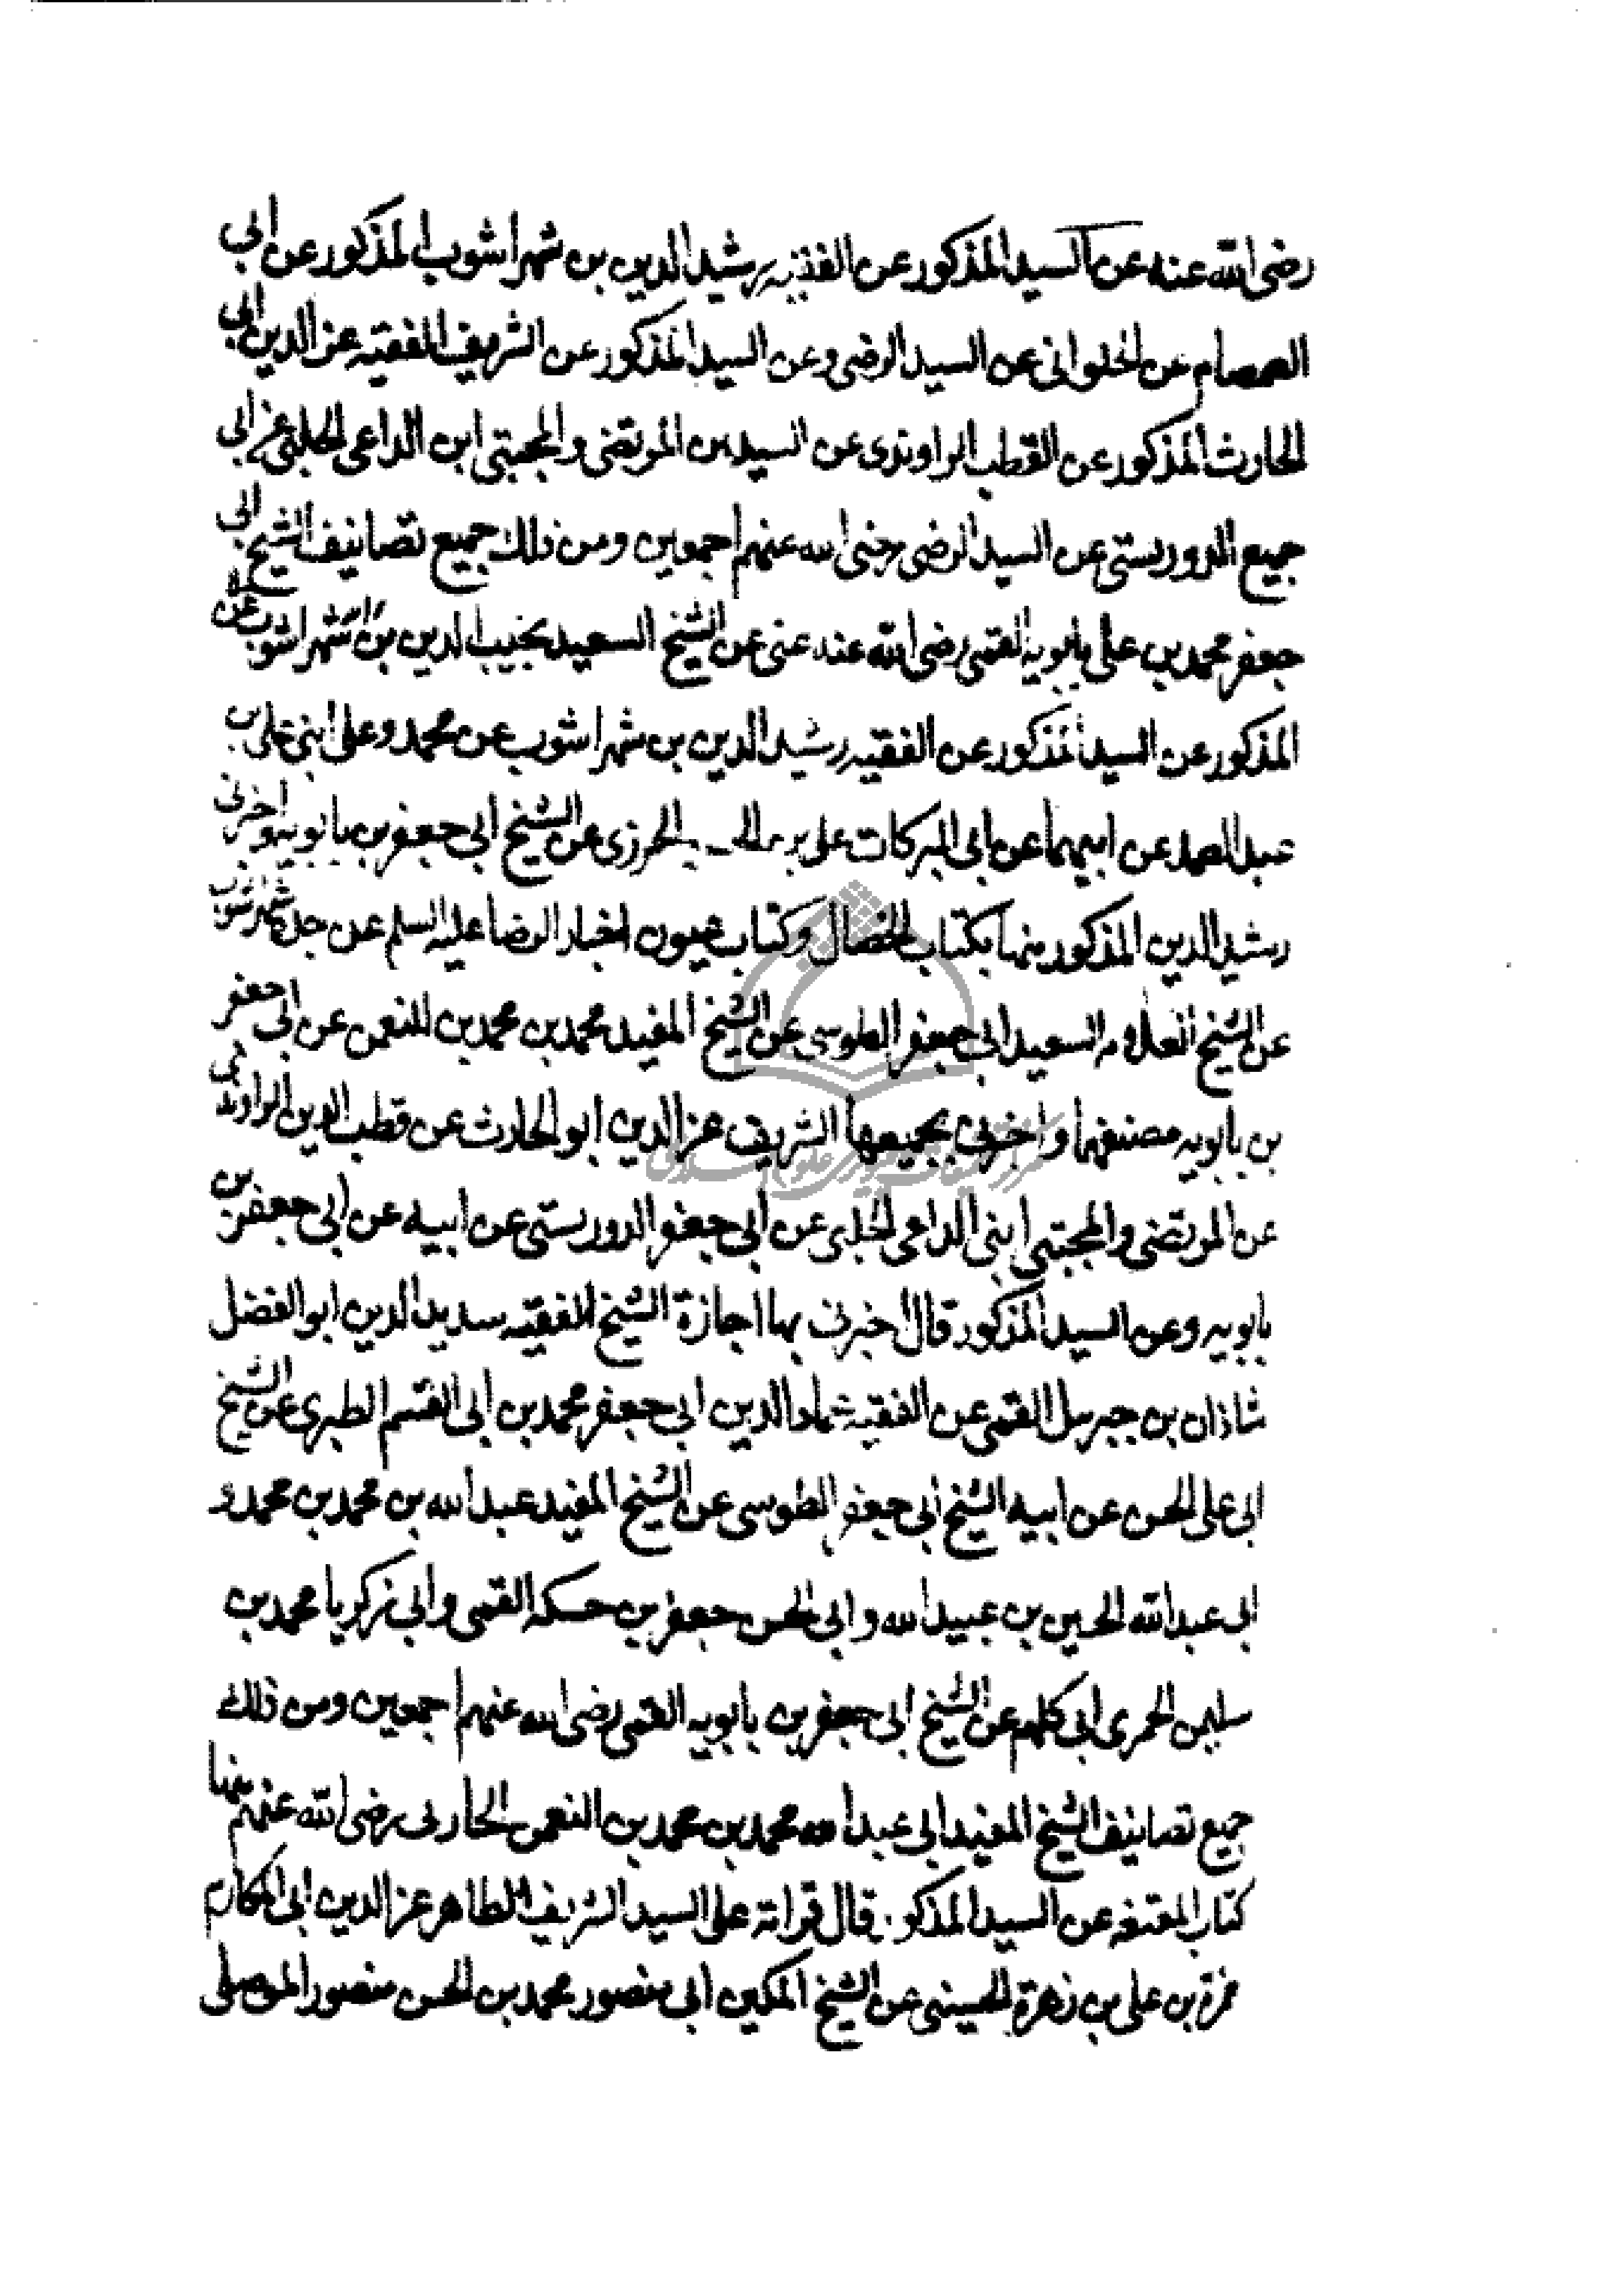 رضی الله عنه عن السید المذکور عن الفقیه رشید الدین بن شهراشوب المذکور عن ابی
الصمصام عن الحلوانی عن السید الرضی وعن السید المذکور عن الشریف الفقیه عز الدین ابی
الحارث المذکور عن القطب الراوندی عن السیدین المرتضی والمجتبی ابن الداعی الحلبی عن ابی
جمیع الدوریستی عن السید الرضی رضی الله عنهم اجمعین ومن ذلک جمیع تصانیف الشیخ ابی
جعفر محمد بن علی بابویه القمی رضی الله عنه عنی عن الشیخ السعید نجیب الدین بن شهراشوب عن
المذکور عن السید المذکور عن الفقیه رشید الدین بن شهراشوب عن محمد وعلی ابنی علی بن
عبد الصمد عن ابیهما عن ابی البرکات علی بن الحرزی عن الشیخ ابی جعفر بن بابویه واخبرنی
رشید الدین المذکور منها بکتاب الخصال وکتاب عیون اخبار الرضا علیه السلم عن جده شهرشوب
عن الشیخ العلامه السعید ابی جعفر الطوسی عن الشیخ المفید محمد بن محمد بن النعمن عن ابی جعفر
بن بابویه مصنفهما واخبرنی بجمیعها الشریف عز الدین ابو الحارث عن قطب الدین الراوندی
عن المرتضی والمجتبی ابنی الداعی الحلبی عن ابی جعفر الدوریستی عن ابیه عن ابی جعفر بن
بابویه وعن السید المذکور قال اخبرنی بها اجازة الشیخ الفقیه سدید الدین ابو الفضل
شاذان بن جبرئل القمی عن الفقیه عماد الدین ابی جعفر محمد بن ابی القسم الطبری عن الشیخ
ابی علی الحسن عن ابیه الشیخ ابی جعفر الطوسی عن الشیخ المفید عبد الله بن محمد بن محمد و
ابی عبد الله الحسین بن عبید الله وابی الحسن جعفر بن حسکه القمی وابی زکریا محمد بن
سلیمن الحمری ابی کلهم عن الشیخ ابی جعفر بن بابویه القمی رضی الله عنهم اجمعین ومن ذلک
جمیع تصانیف الشیخ المفید ابی عبد الله محمد بن محمد بن النعمن الحارثی رضی الله عنهم منها
کتاب المقنعه عن السید المذکور قال قراته علی السید الشریف الطاهر عز الدین ابی المکارم
حمزة بن علی بن زهرة الحسینی عن الشیخ المکین ابی منصور محمد بن الحسن منصور الموصلی